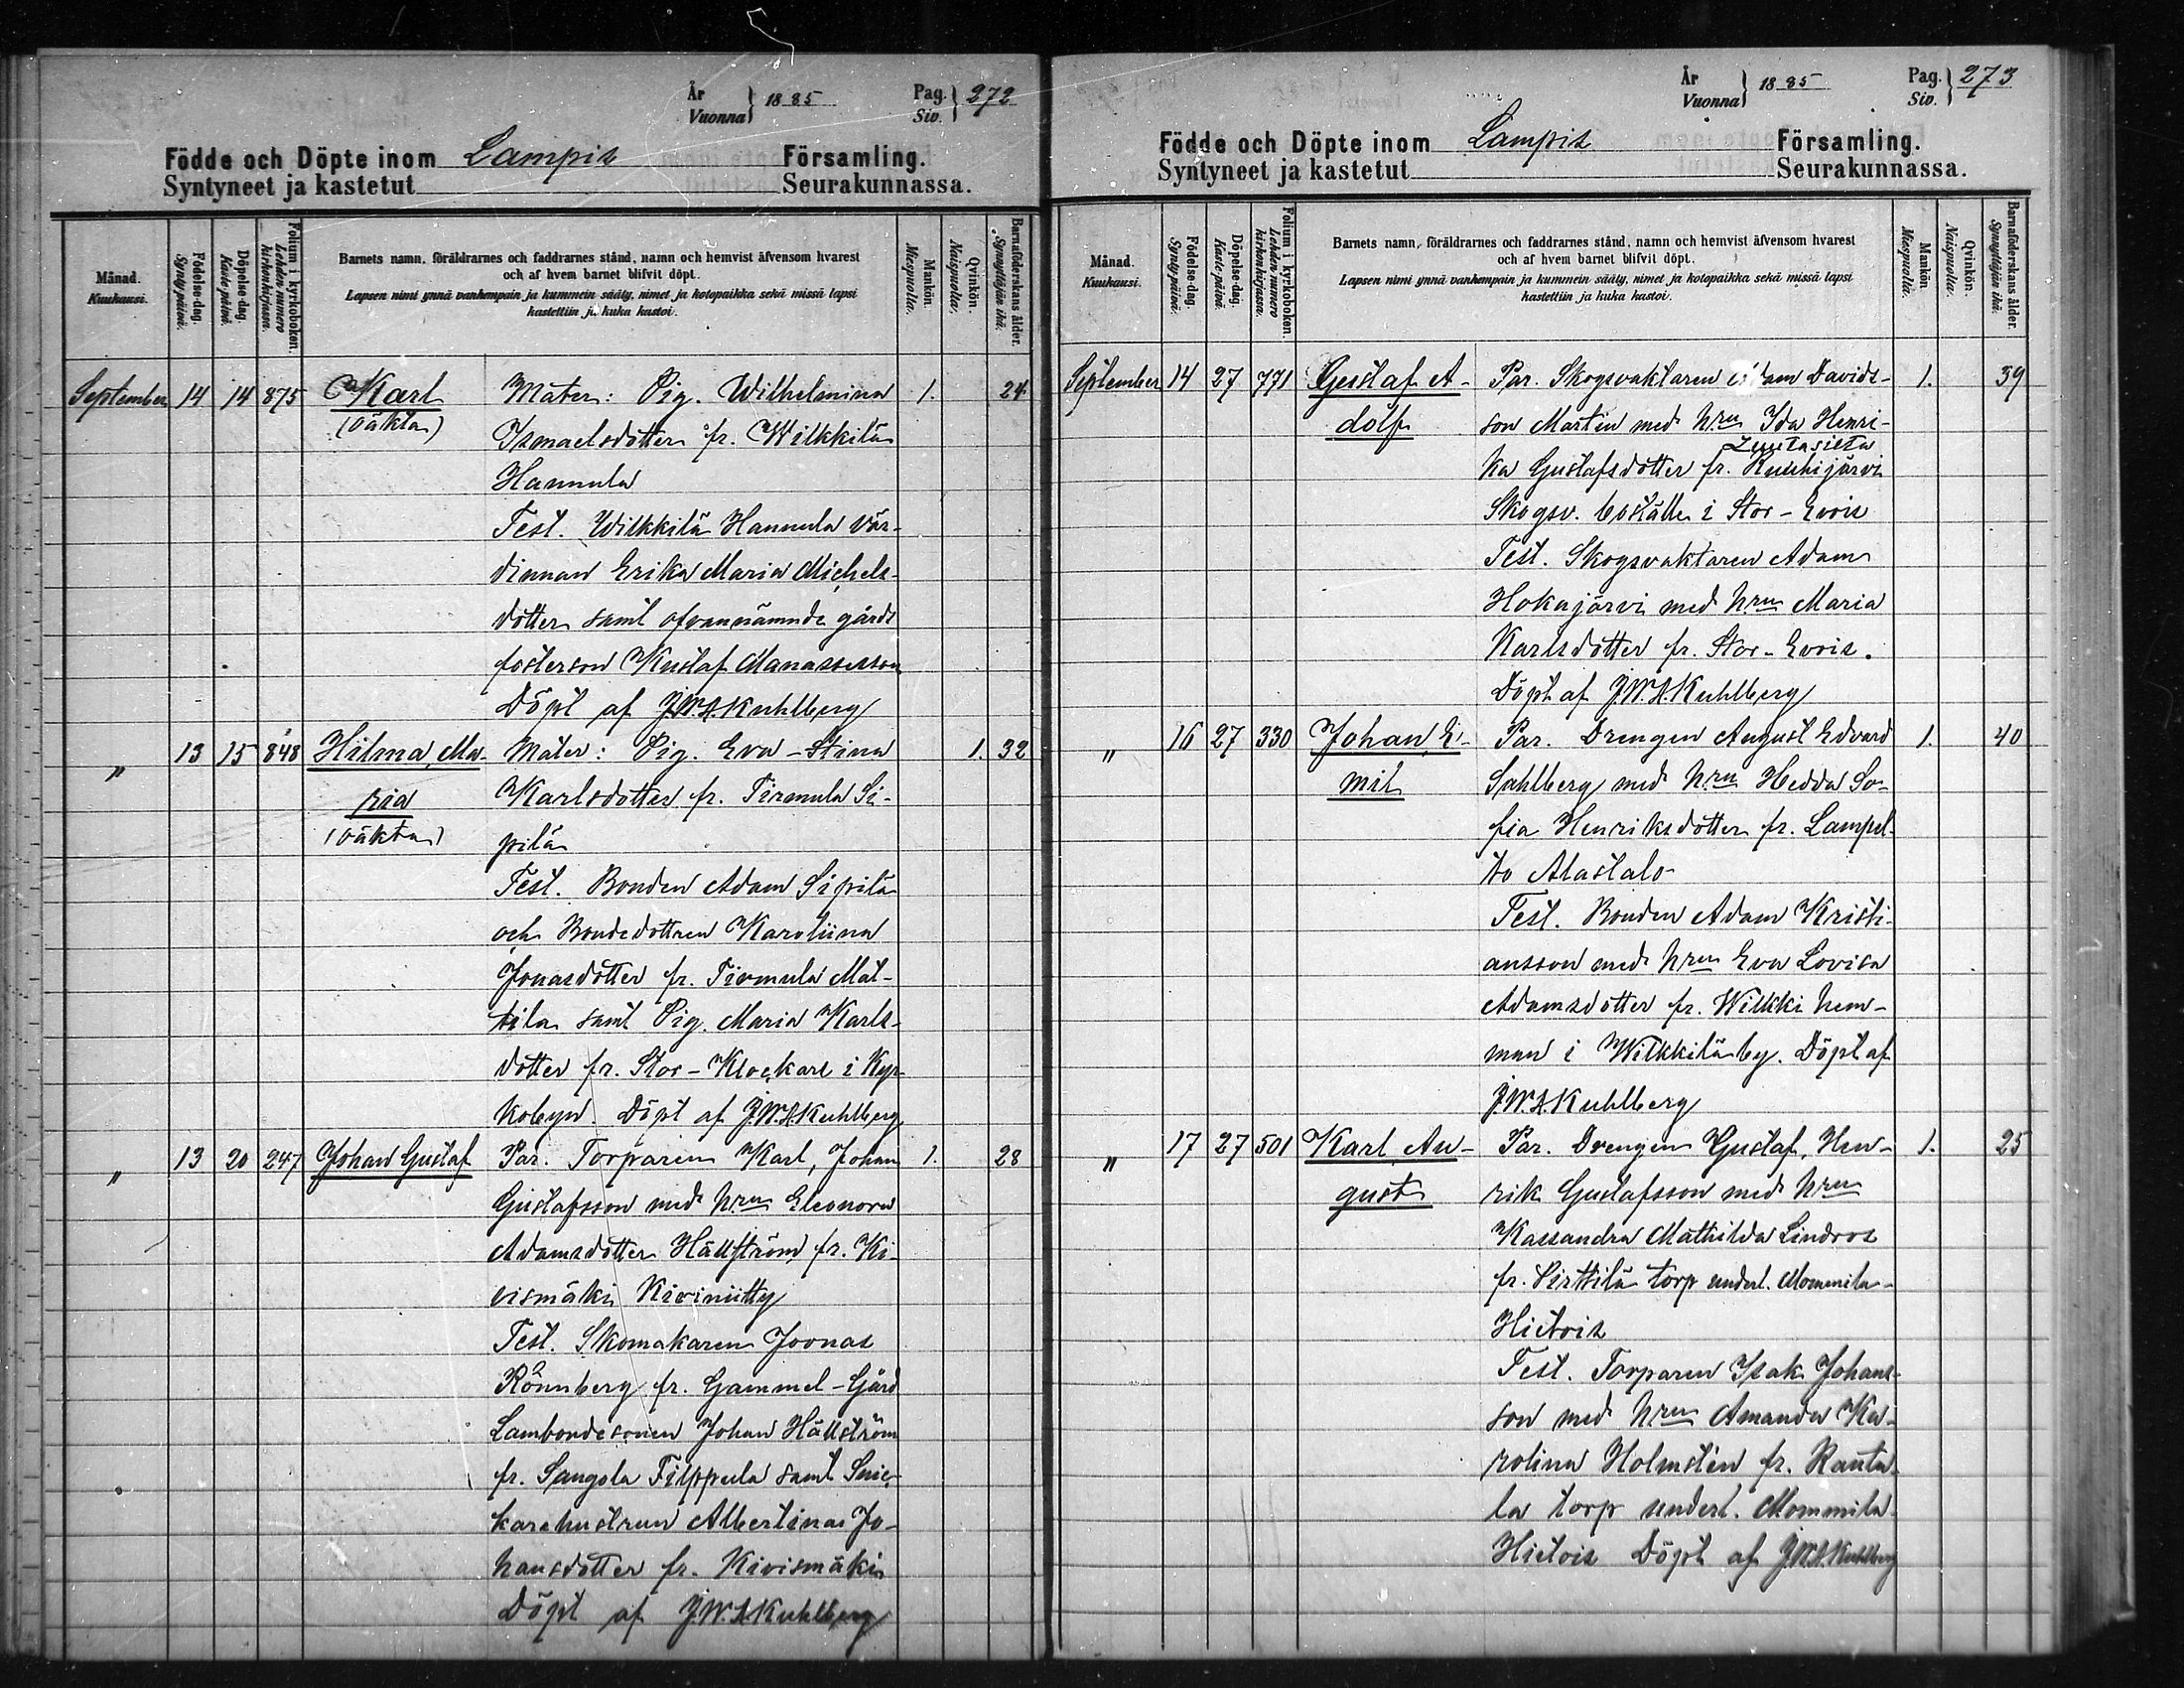 År
Vuonna
1885
Pag.
Siv.
272
Födde och Döpte inom Lampis Församling.
Syntyneet ja kastetut Seurakunnassa.
Månad.
Kuukausi.
Födelse-dag.
Synty päivä.
Döpelse-dag.
Kaste-päivä.
Folium i kyrkoboken.
Lehden numero kirkonkirjassa.
Barnets namn, föräldrarnes och faddrarnes stånd, namn och hemvist äfvensom hvarest
och af hvem barnet blifvit döpt.
Lapsen nimi ynnä vanhempain ja kummein sääty, nimet ja kotopaikka sekä missä lapsi
kastettiin ja kuka kastoi.
Mankön.
Miespuolta.
Qvinkön.
Naispuolta.
Barnaföderskans ålder.
Synnyttäjän ikä.
September 14 14 875 Karl Mater: Pig. Wilhelmina 1. 24
(oäkta) Ismaelsdotter fr. Wilkkilä
Hannula
Test. Wilkkilä Hannula vär-
dinnan Erika Maria Michels-
dotter samt ofvannämnde gårds
fosterson Kustaf Manassesson
Döpt af J.W.A. Kuhlberg
" 13 15 848 Hilma Ma- Mater: Pig. Eva-Stina 1. 32
ria Karlsdotter fr. Tirmula Si-
(oäkta) pilä
Test. Bonden Adam Sipilä
och Bondedottren Karoliina
Jonasdotter fr. Tirmula Mat-
tila samt Pig. Maria Karls-
dotter fr. Stor-Klockars i Kyr-
kobyn. Döpt af J.W.A. Kuhlberg
" 13 20 247 Johan Gustaf Par. Torparen Karl, Johan 1. 28
Gustafsson med h:run Eleonora
Adamsdotter Hällström fr. Ki-
vismäki Kiviniitty
Test. Skomakaren Joonas
Rönnberg fr. Gammel-Gård
Lambondesonen Johan Hällström
fr. Sangola Filppula samt Snic-
karehustrun Albertina Jo-
hansdotter fr. Kivismäki
Döpt af J.W.A. Kuhlberg
År
Vuonna
1885
Pag.
Siv.
273
Födde och Döpte inom Lampis Församling.
Syntyneet ja kastetut Seurakunnassa.
Månad.
Kuukausi.
Födelse-dag.
Synty päivä.
Döpelse-dag.
Kaste-päivä.
Folium i kyrkoboken.
Lehden numero kirkonkirjassa.
Barnets namn, föräldrarnes och faddrarnes stånd, namn och hemvist äfvensom hvarest
och af hvem barnet blifvit döpt.
Lapsen nimi ynnä vanhempain ja kummein sääty, nimet ja kotopaikka sekä missä lapsi
kastettiin ja kuka kastoi.
Mankön.
Miespuolta.
Qvinkön.
Naispuolta.
Barnaföderskans ålder.
Synnyttäjän ikä.
September 14 27 771 Gustaf A- Par. Skogsvaktaren Adam Davids- 1. 39
dolf son Martin med h:run Ida Henri-
ka Gustafsdotter fr. Ruuhijärvi
Skogsv. boställe i Stor-Evois
Test. Skogsvaktaren Adam
Hokajärvi med h:run Maria
Karlsdotter fr. Stor-Evois.
Döpt af J.W.A. Kuhlberg
" 16 27 330 Johan E- Par. Drengen August Edvard 1. 40
mil Sahlberg med h:run Hedda So-
fia Henriksdotter fr. Lampel-
to Alastalo
Test. Bonden Adam Kristi-
ansson med h:run Eva Lovisa
Adamsdotter fr. Wilkki hem-
man i Wilkkilä by. Döpt af
J.W.A. Kuhlberg
" 17 27 501 Karl Au- Par. Drengen Gustaf, Hen- 1. 25
gust rik Gustafsson med h:run
Kassandra Mathilda Lindros
fr. Pirttilä torp underl. Mommila-
Hietois
Test. Torparen Isak Johans-
son med h:run Amanda Ka-
rolina Holmstén fr. Ranta-
la torp underl. Mommila
Hietois Döpt af J.W.A. Kuhlberg